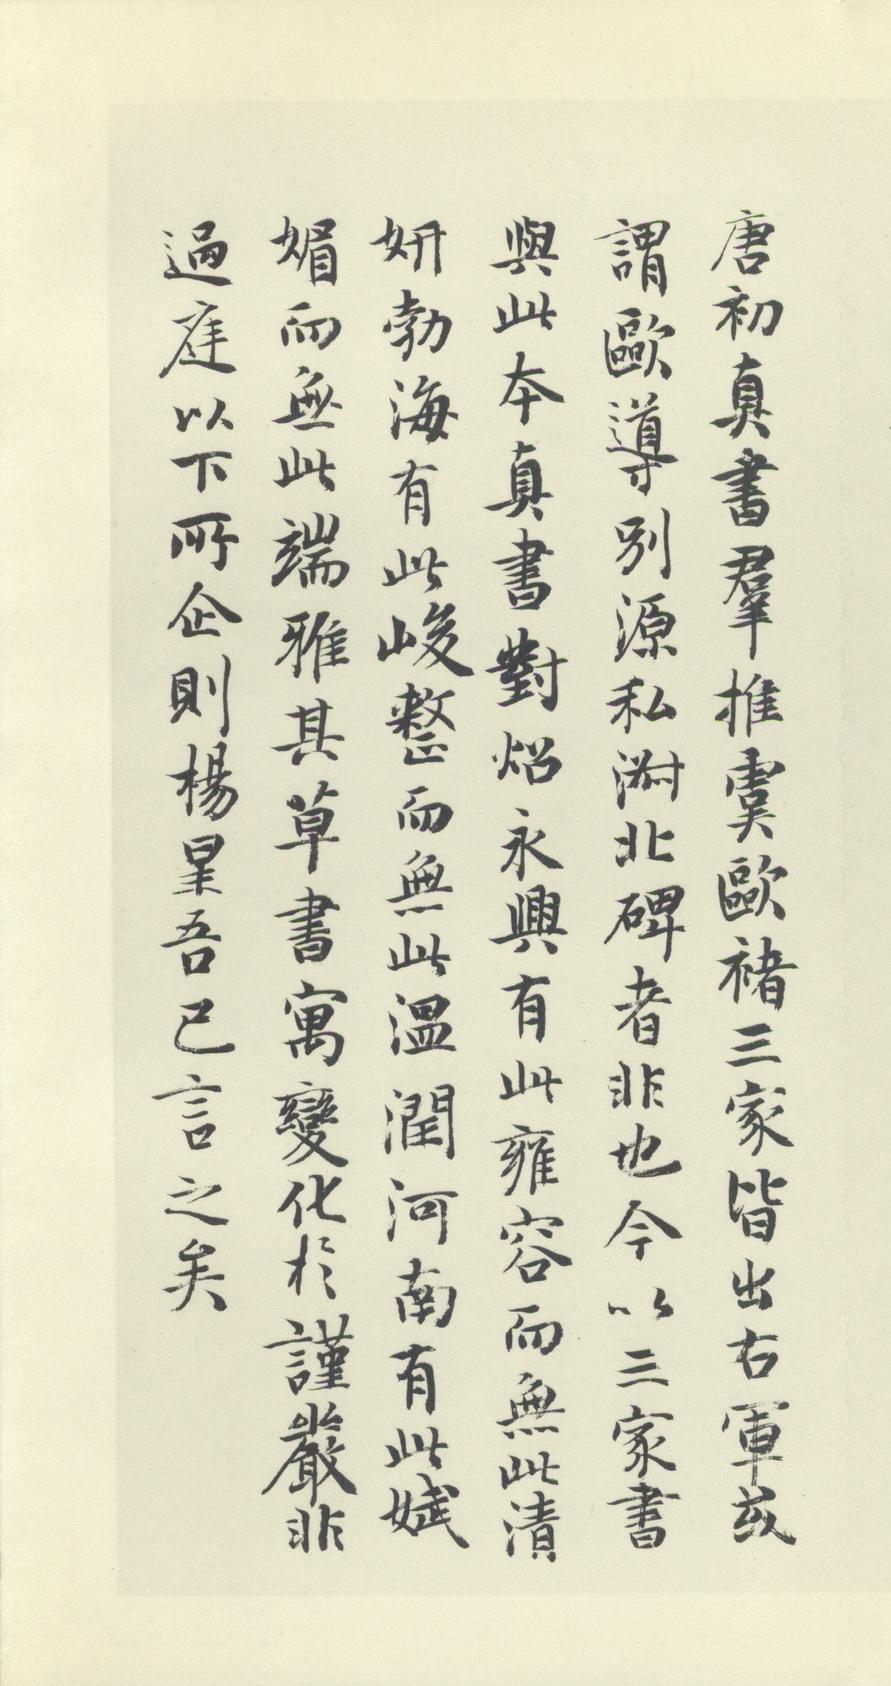 唐初真書羣推虞歐褚三家皆出右軍或
謂歐導別源私淑北碑者非也今以三家書
與此本真書對炤永興有此雍容而無此清
妍勃海有此峻整而無此溫潤河南有此娬
媚而無此端雅其草書寓變化於謹嚴非
過庭以下所企則楊星吾已言之矣